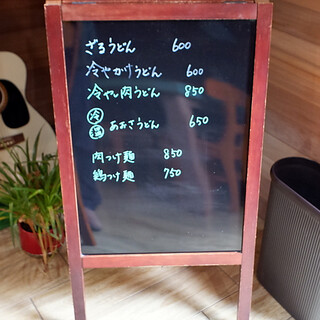 ざるうどん 600
冷やかけうどん 600
冷やし肉うどん 850
冷
温 あおさうどん 650
肉つけ麺 850
鶏つけ麺 750